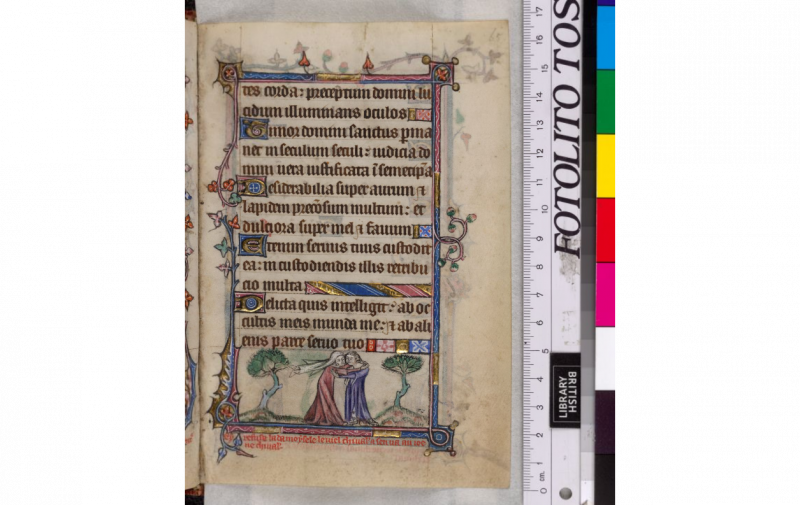 tes corda: preceptum domini lu
cidum illuminans oculos
Timor domini sanctus pma
net in seculum seculi: iudicia do
mini uera iustificata ī semetipsa
Desiderabilia super aurum ⁊
lapidem preciosum multum: et
dulciora super mel ⁊ fauum
Etenim seruus tuus custodit
ea: in custodiendis illis retribu
cio multa
Delicta quis intelligit: ab oc
cultis meis munda me: ⁊ ab ali
enis parce seruo tuo
la damoysele le ueil
ne chiual'.
FOTOLITO TOS
BRITISH
LIBRARY
0 cm. 1 2 3 4 5 6 7 8 9 10 11 12 13 14 15 16 17